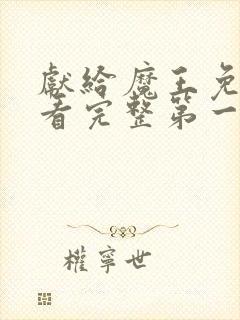 獻給魔王免
看完整第一
權寧世